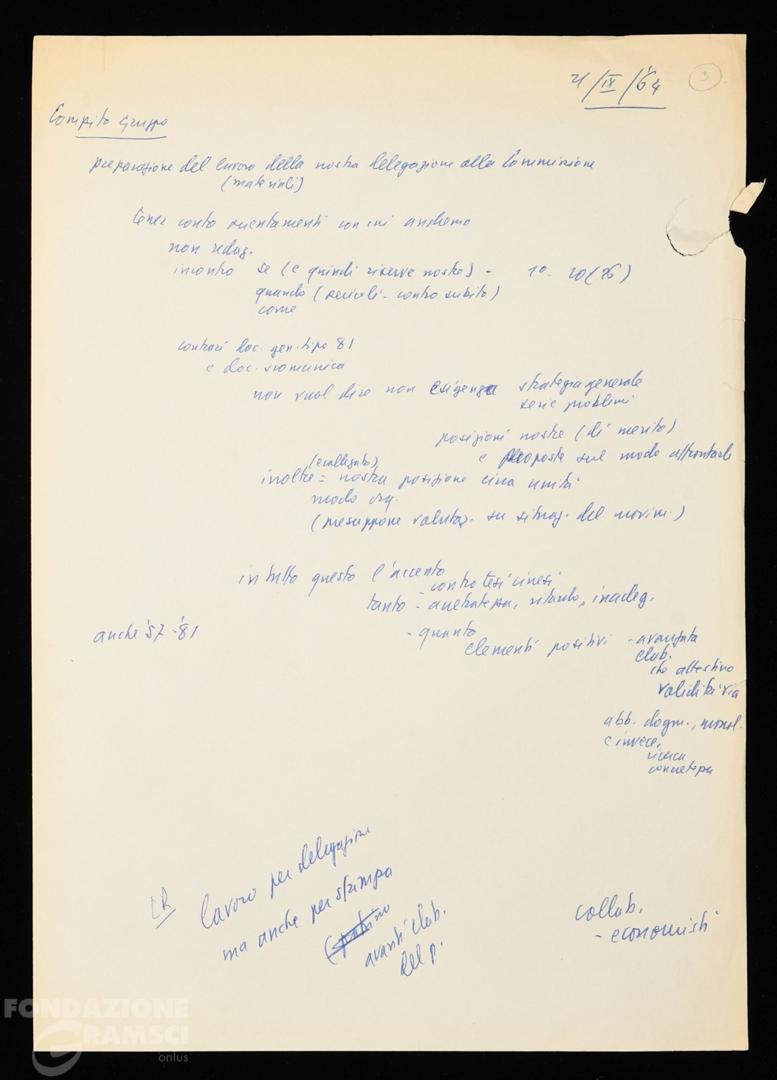 21/IX/64
3
Compito Gruppo
preparazione del lavoro della nostra delegazione alla Commissione
(materiali)
tener conto orientamenti con cui andremo
non redaz.
incontro se (e quindi riserve nostre) - 1º - 20 (26)
quando (pericoli - contro subito)
come
contrari doc. gen. tipo 81
e doc. scomunica
non vuol dire non esigenza strategia generale
serie problemi
posizioni nostre (di merito)
e proposte sul modo affrontarli
(collegato)
inoltre = nostra posizione circa unità
modo org.
(presuppone valutaz. su situaz. del movim.)
in tutto questo l'accento
- contro tesi cinesi
tanto - arretratezza, ritardo, inadeg.
anche '57 - '81
- quanto
elementi positivi - avanzata
elab.
che attestino
validità via
abb. dogm., monol.
e invece,
ricerca
concretezza
CR
lavoro per delegazione
ma anche per stampa
avanti elab.
del p.
collab.
- economisti
FONDAZIONE
GRAMSCI
onlus